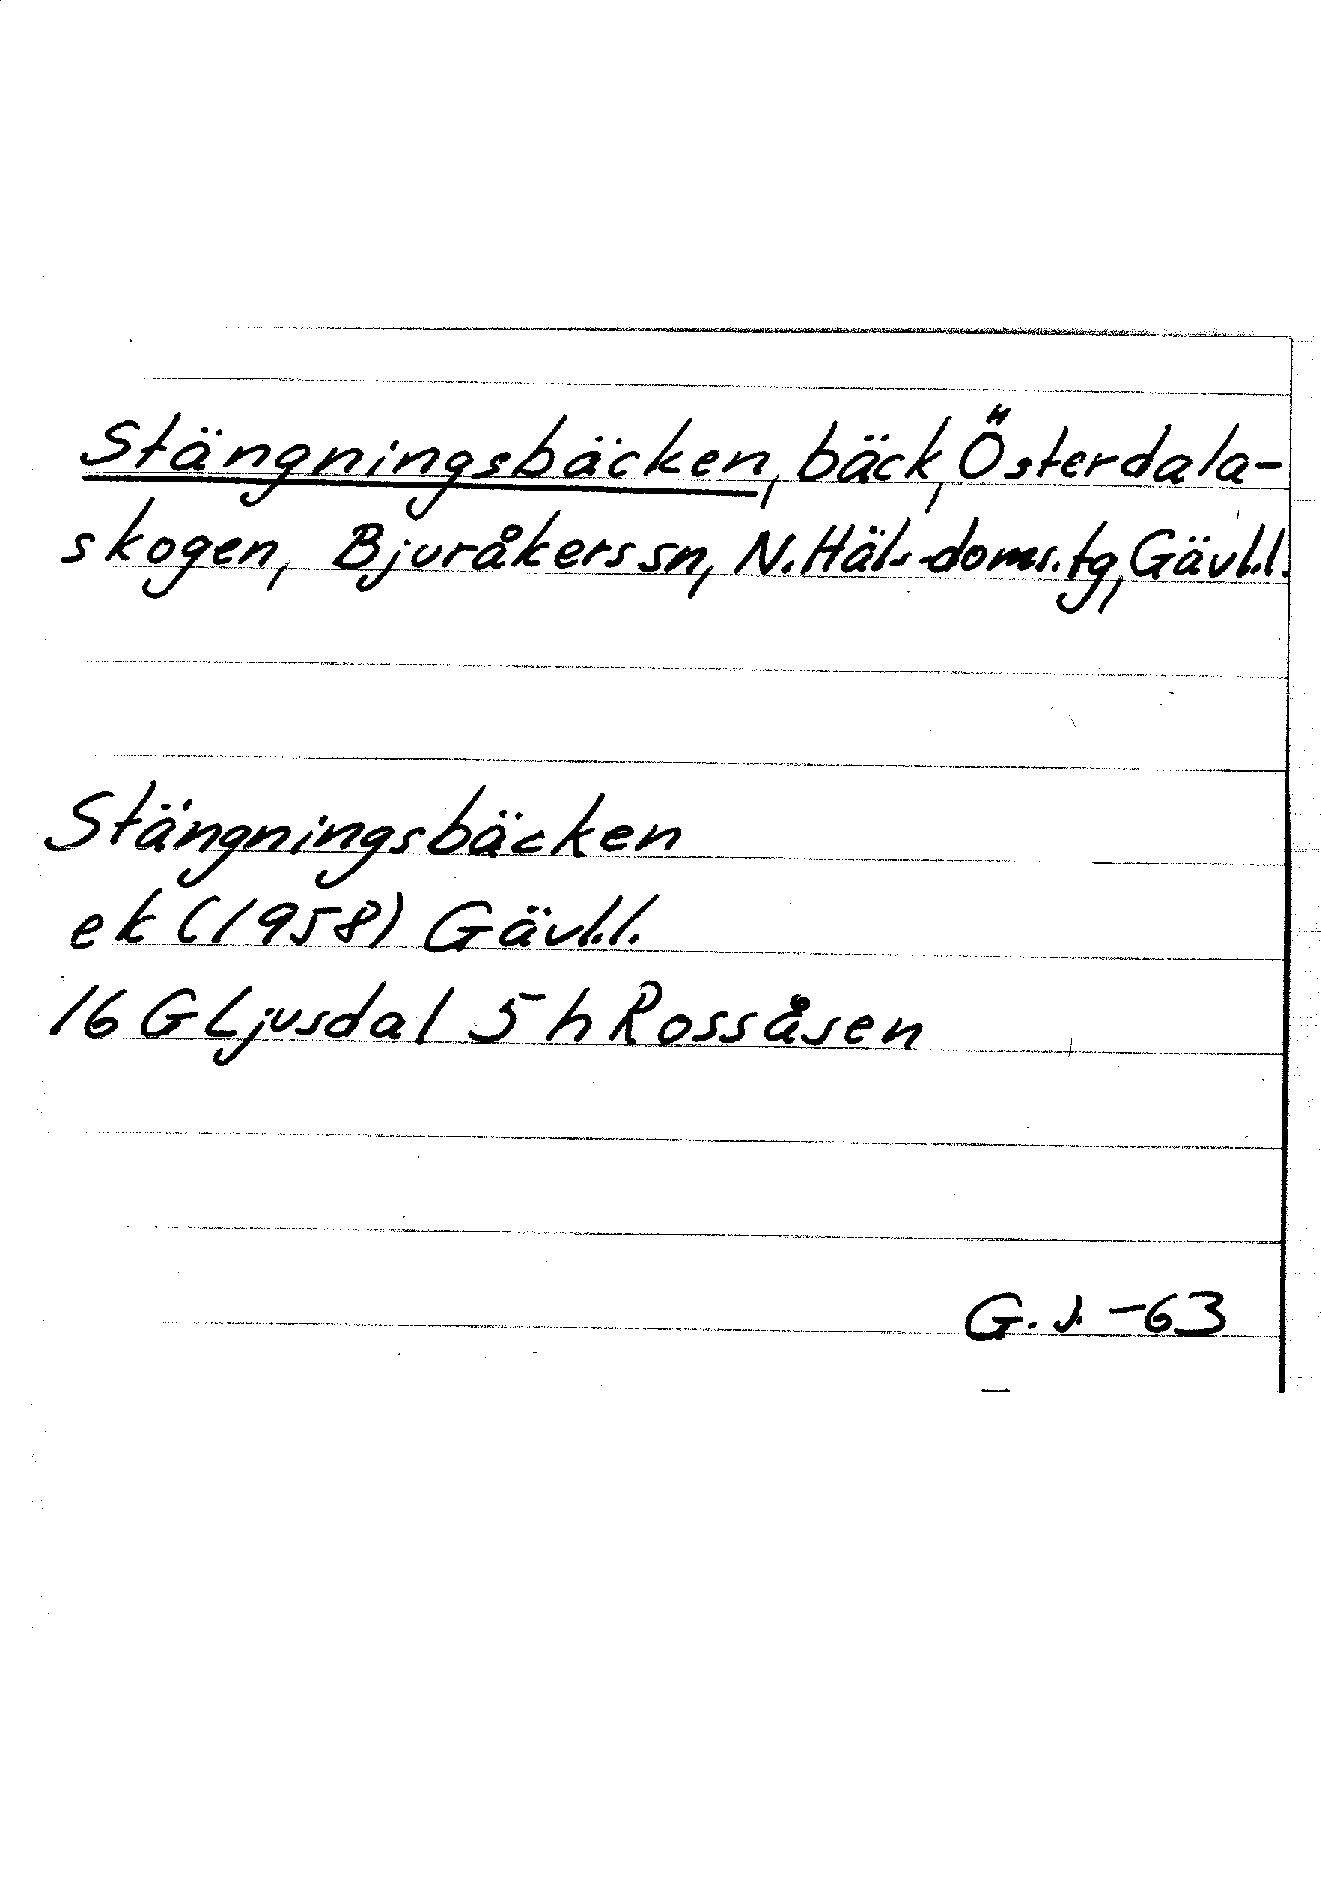 Stängningsbäcken, bäck, Österdala-
skogen, Bjuråkers sn, N. Häls doms. tg, Gävl.l.
Stängningsbäcken
ek (1958) Gävl.l.
16 G Ljusdal 5 h Rossåsen
G. J. -63